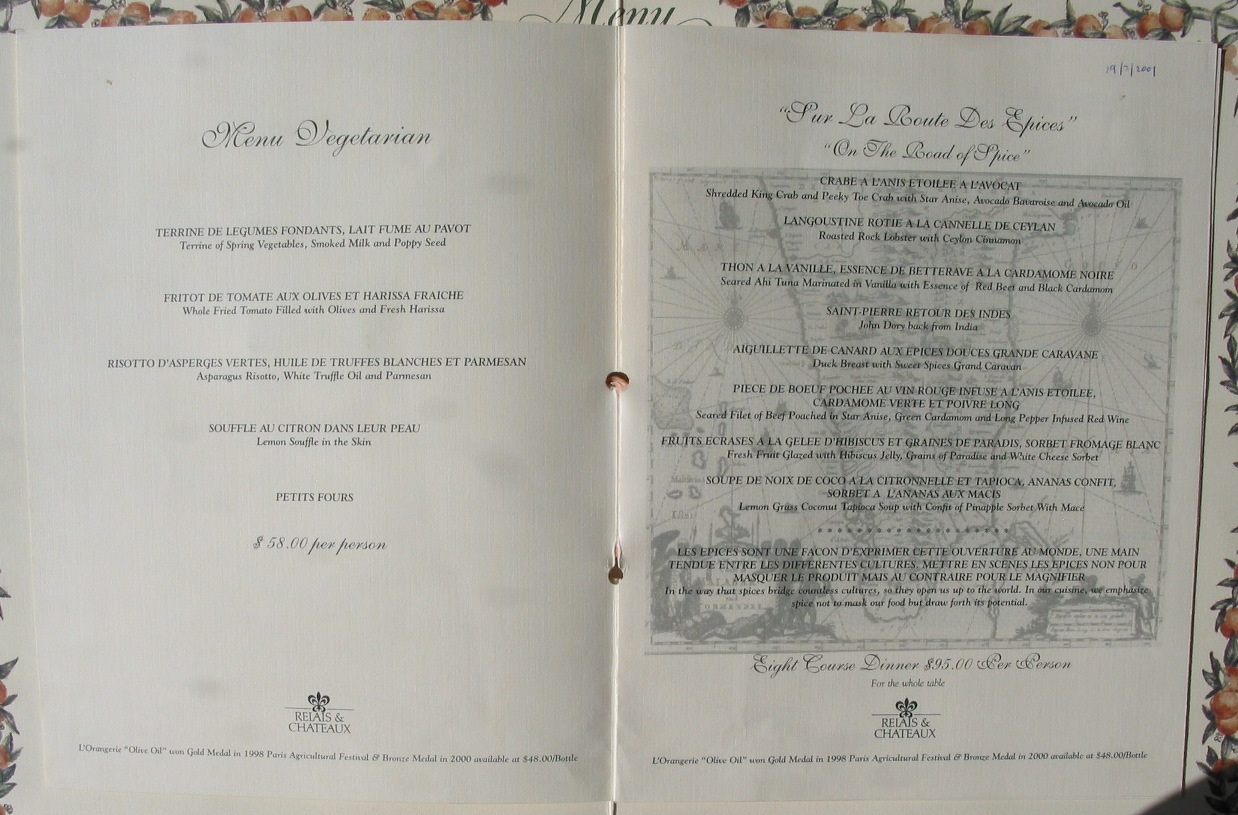 Menu
Menu Vegetarian
TERRINE DE LEGUMES FONDANTS, LAIT FUME AU PAVOT
Terrine of Spring Vegetables, Smoked Milk and Poppy Seed
FRITOT DE TOMATE AUX OLIVES ET HARISSA FRAICHE
Whole Fried Tomato Filled with Olives and Fresh Harissa
RISOTTO D'ASPERGES VERTES, HUILE DE TRUFFES BLANCHES ET PARMESAN
Asparagus Risotto, White Truffle Oil and Parmesan
SOUFFLE AU CITRON DANS LEUR PEAU
Lemon Souffle in the Skin
PETITS FOURS
$ 58.00 per person
RELAIS &
CHATEAUX
L'Orangerie "Olive Oil" won Gold Medal in 1998 Paris Agricultural Festival & Bronze Medal in 2000 available at $48.00/Bottle
"Sur La Route Des Epices"
"On The Road of Spice"
CRABE A L'ANIS ETOILEE A L'AVOCAT
Shredded King Crab and Peeky Toe Crab with Star Anise, Avocado Bavaroise and Avocado Oil
LANGOUSTINE ROTIE A LA CANNELLE DE CEYLAN
Roasted Rock Lobster with Ceylon Cinnamon
THON A LA VANILLE, ESSENCE DE BETTERAVE A LA CARDAMOME NOIRE
Seared Ahi Tuna Marinated in Vanilla with Essence of Red Beet and Black Cardamom
SAINT-PIERRE RETOUR DES INDES
John Dory back from India
AIGUILLETTE DE CANARD AUX EPICES DOUCES GRANDE CARAVANE
Duck Breast with Sweet Spices Grand Caravan
PIECE DE BOEUF POCHEE AU VIN ROUGE INFUSE A L'ANIS ETOILEE,
CARDAMOME VERTE ET POIVRE LONG
Seared Filet of Beef Poached in Star Anise, Green Cardamom and Long Pepper Infused Red Wine
FRUITS ECRASES A LA GELEE D'HIBISCUS ET GRAINES DE PARADIS, SORBET FROMAGE BLANC
Fresh Fruit Glazed with Hibiscus Jelly, Grains of Paradise and White Cheese Sorbet
SOUPE DE NOIX DE COCO A LA CITRONNELLE ET TAPIOCA, ANANAS CONFIT,
SORBET A L'ANANAS AUX MACIS
Lemon Grass Coconut Tapioca Soup with Confit of Pinapple Sorbet With Mace
LES EPICES SONT UNE FACON D'EXPRIMER CETTE OUVERTURE AU MONDE, UNE MAIN
TENDUE ENTRE LES DIFFÉRENTES CULTURES, METTRE EN SCÈNES LES EPICES NON POUR
MASQUER LE PRODUIT MAIS AU CONTRAIRE POUR LE MAGNIFIER
In the way that spices bridge countless cultures, so they open us up to the world. In our cuisine, we emphasize
spice not to mask our food but draw forth its potential.
Eight Course Dinner $95.00 Per Person
For the whole table
RELAIS &
CHATEAUX
L'Orangerie "Olive Oil" won Gold Medal in 1998 Paris Agricultural Festival & Bronze Medal in 2000 available at $48.00/Bottle